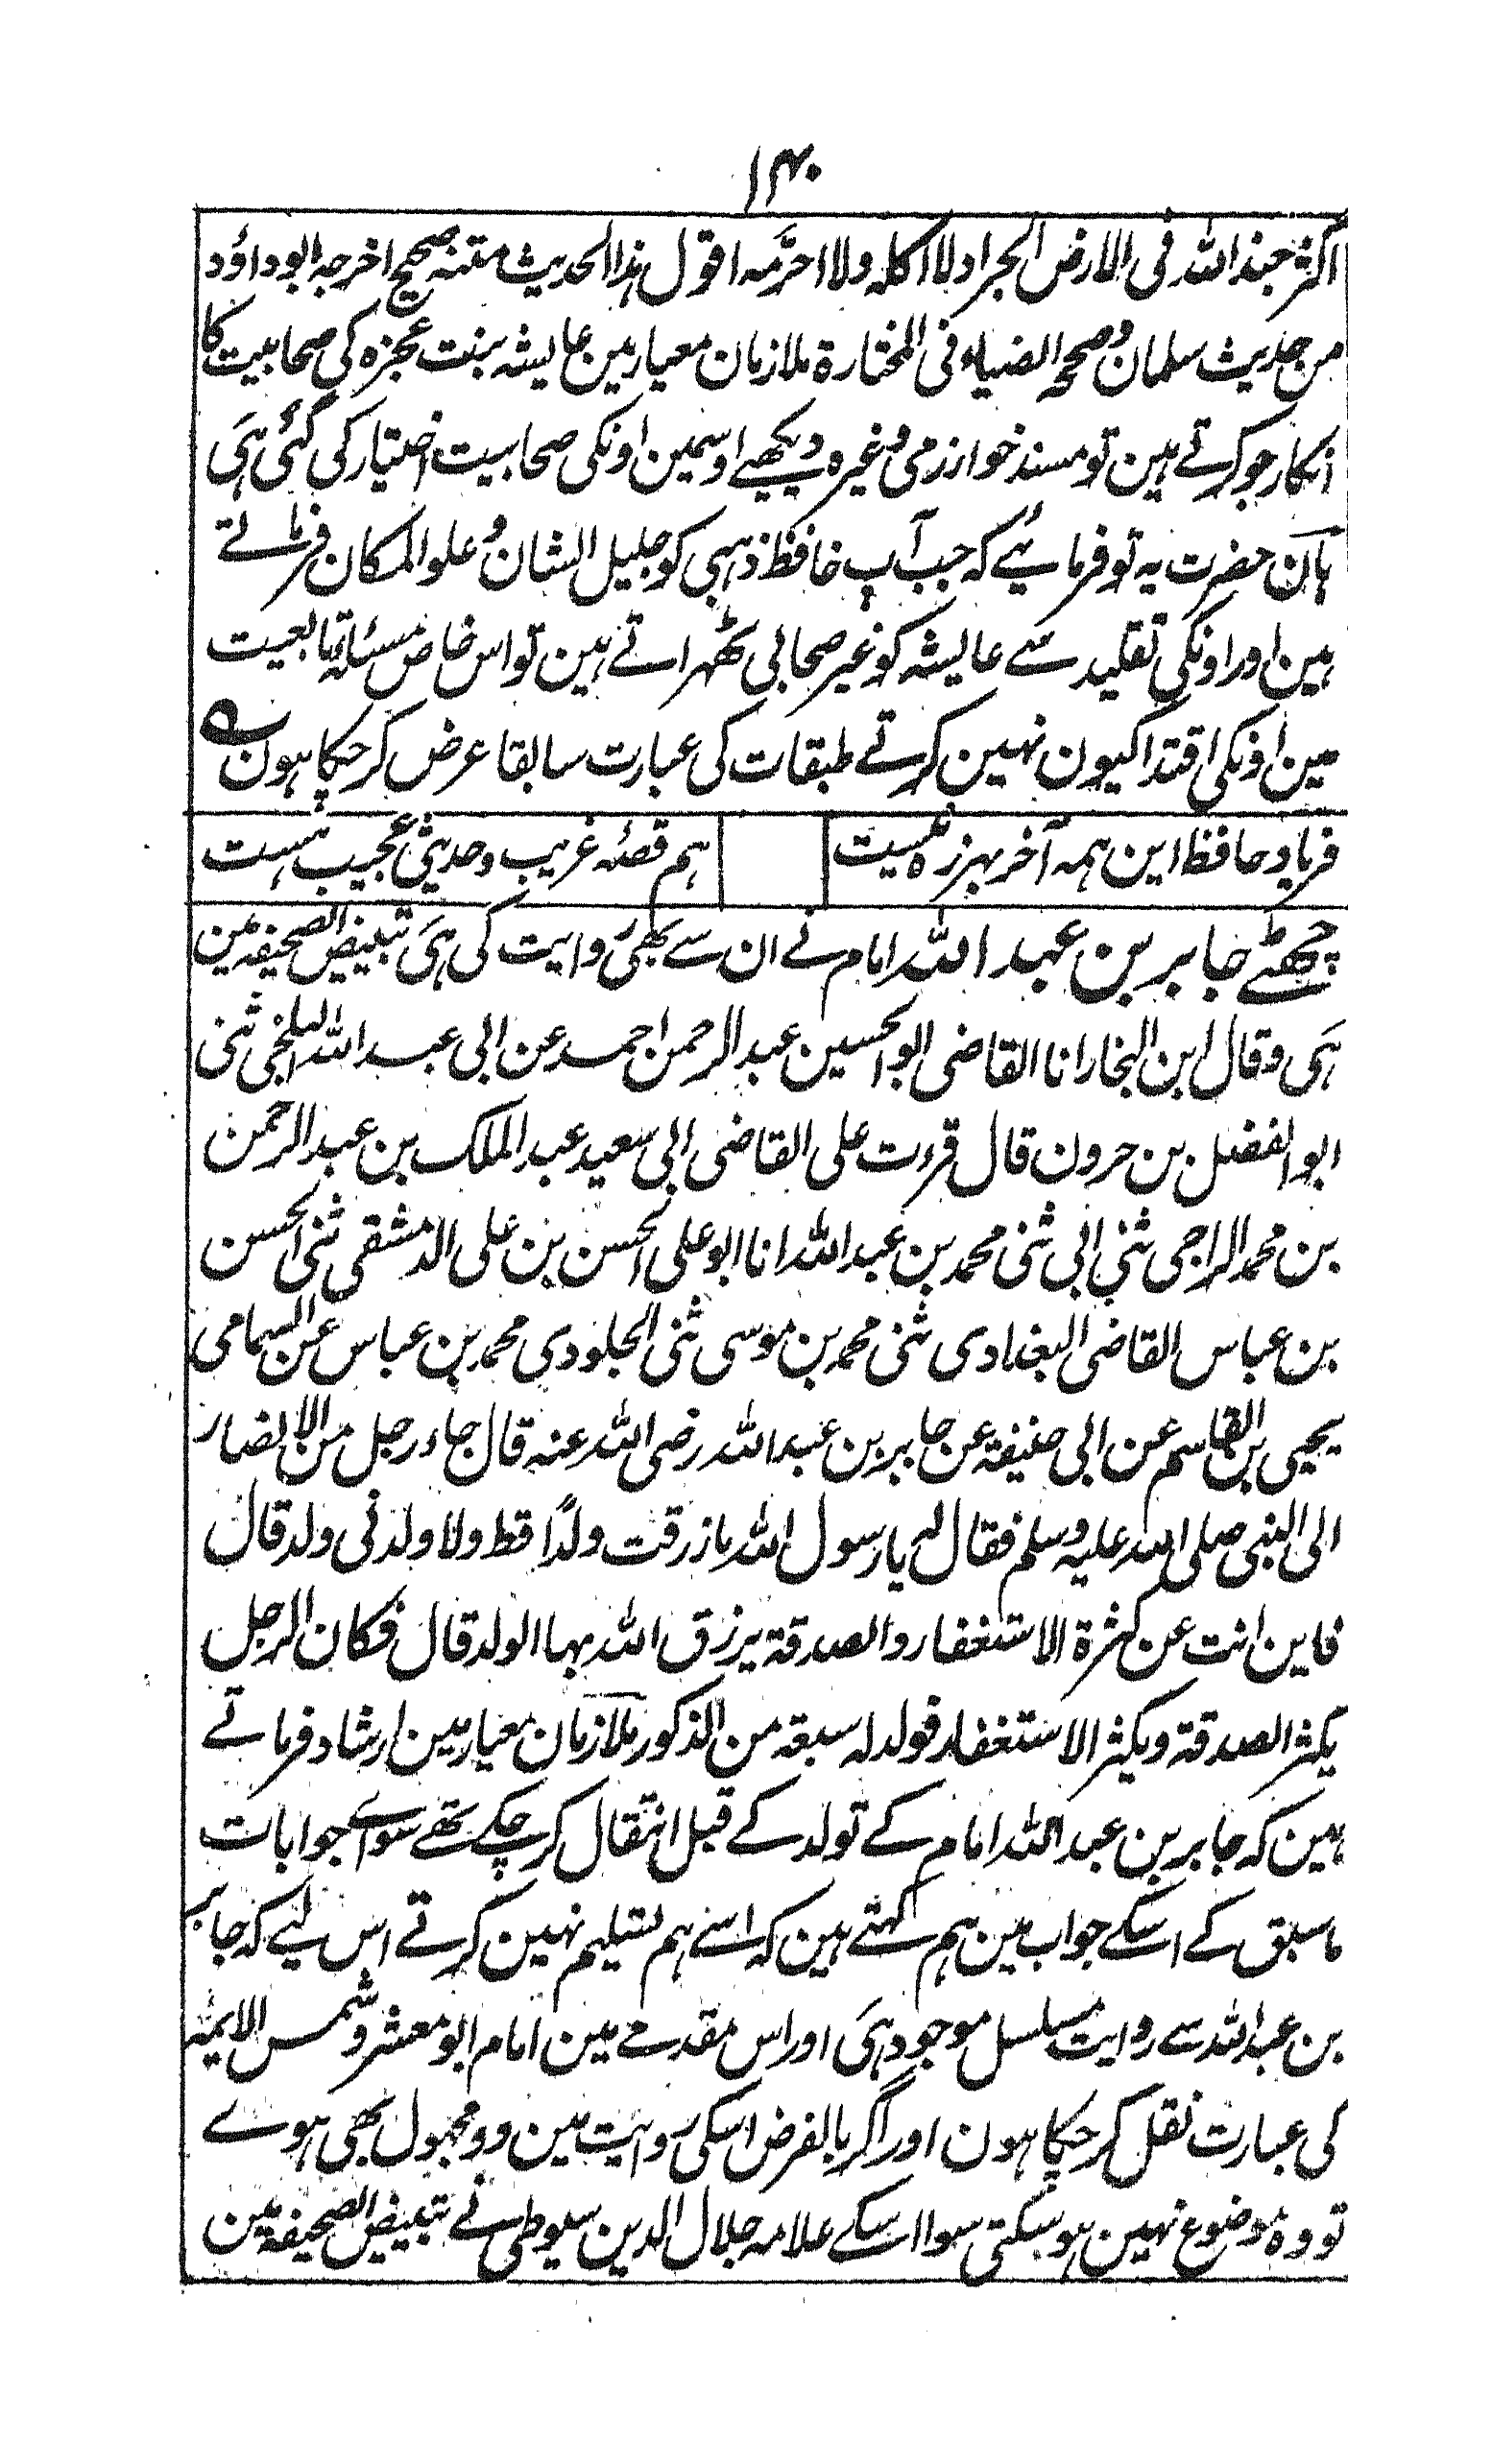 ۱۴۰
اکثر جند اللہ فی الارض الجراد لا اکلہ ولا احرّمہ اقول ہذا الحدیث متنہ صحیح اخرجہ ابو داؤد
من حدیث سلمان وصححہ الضیاء فی المختارۃ ملازمان معیار مین عایشہ بنت عجزہ کی صحابیت کا
انکار جو کرتے ہین تو مسند خوارزمی وغیرہ دیکھیے اوسمین اونکی صحابیت اختیار کی گئی ہی
ہان حضرت یہ تو فرمائیے کہ جب آپ حافظ ذہبی کو جلیل الشان و علو المکان فرماتے
ہین اور اونکی تقلید سے عایشہ کو غیر صحابی ٹھہراتے ہین تو اس خاص مسئلہ تابعیت
مین اونکی اقتدا کیون نہین کرتے طبقات کی عبارت سابقا عرض کر چکا ہون ؎
فریاد حافظ این ہمہ آخر بہرزہ نیست ہم قصۂ غریب وحدیثی عجیب ہست
چھٹے جابر بن عبد اللہ امام نے ان سے بھی روایت کی ہی تبییض الصحیفہ مین
ہی وقال ابن النجار انا القاضی ابو الحسین عبد الرحمن احمد عن ابی عبد اللہ البلخی ثنی
ابو الفضل بن حرون قال قرءت علی القاضی ابی سعید عبد الملک بن عبد الرحمن
بن محمد الراجی ثنی ابی ثنی محمد بن عبد اللہ انا ابو علی الحسن بن علی الدمشقی ثنی الحسن
بن عباس القاضی البغدادی ثنی محمد بن موسی ثنی الجلودی محمد بن عباس عن السمامی
یحیی بن القاسم عن ابی حنیفۃ عن جابر بن عبد اللہ رضی اللہ عنہ قال جاء رجل من الانصار
الی النبی صلی اللہ علیہ وسلم فقال لہ یا رسول اللہ ما زرقت ولدًا قط ولا ولد لی ولد قال
فاین انت عن کثرۃ الاستغفار والصدقۃ یرزق اللہ بہا الولد قال فکان الرجل
یکثر الصدقۃ ویکثر الاستغفار فولد لہ سبعۃ من الذکور ملازمان معیار مین ارشاد فرماتے
ہین کہ جابر بن عبد اللہ امام کے تولد کے قبل انتقال کر چکے تھے سواے جوابات
ماسبق کے اسکے جواب مین ہم کہتے ہین کہ اسے ہم تسلیم نہین کرتے اس لیے کہ جابر
بن عبد اللہ سے روایت مسلسل موجود ہی اور اس مقدمے مین امام ابو معشر و شمس الایمہ
کی عبارت نقل کر چکا ہون اور اگر بالفرض اسکی روایت مین دو مجہول بھی ہوے
تو وہ موضوع نہین ہو سکتی سوا اسکے علامہ جلال الدین سیوطی نے تبییض الصحیفہ مین